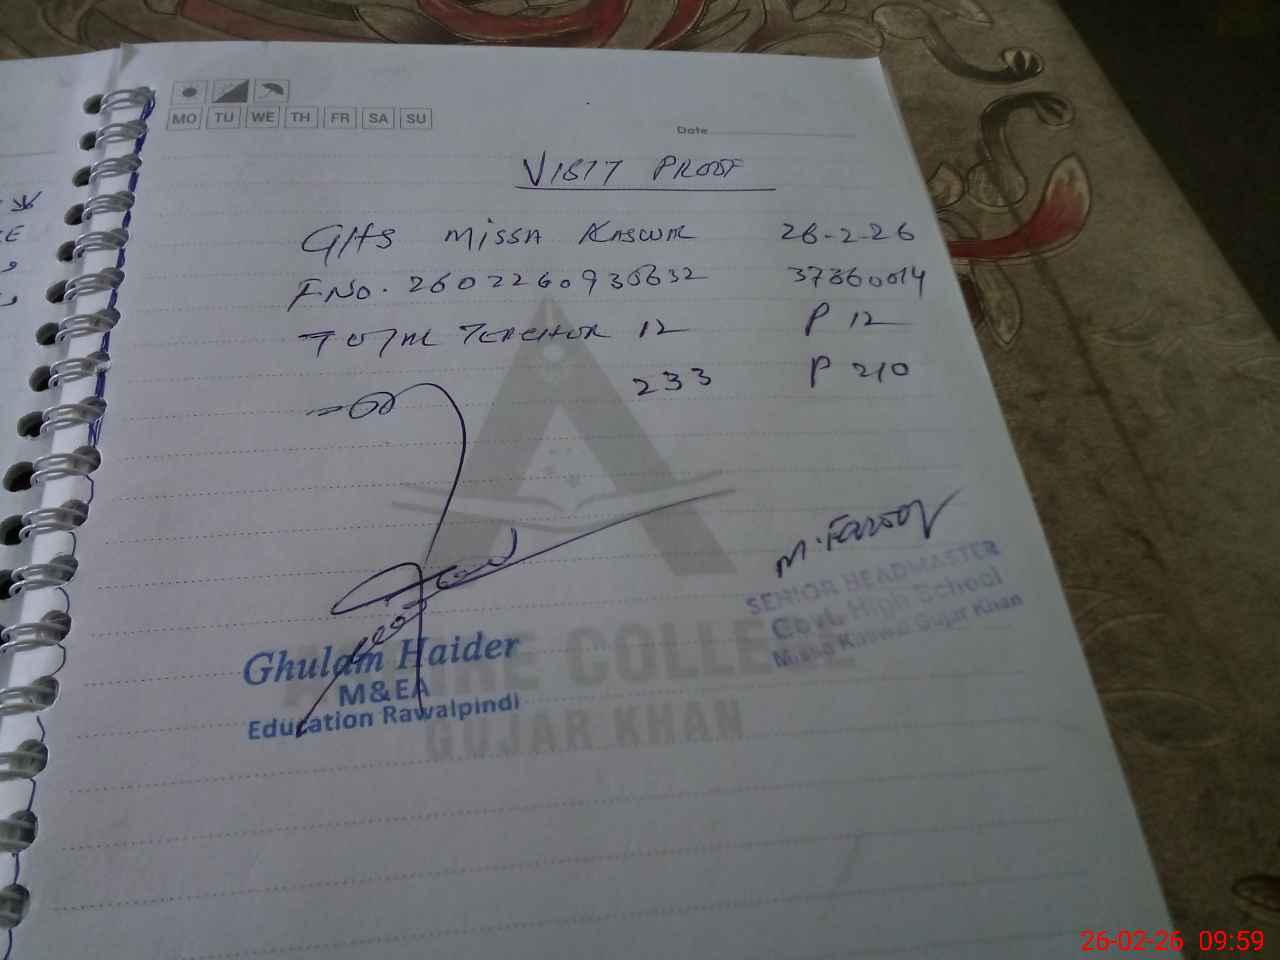 MO TU WE TH FR SA SU
Date
VISIT PROOF
GHS MISSA KASWAL 26-2-26
F.NO. 2602260930632 37360014
TOTAL TEACHER 12 P 12
233 P 210
M. Farooq
SENIOR HEADMASTER
Govt. High School
Missa Kaswal Gujar Khan
Ghulam Haider
M&EA
Education Rawalpindi
COLLEGE
GUJAR KHAN
26-02-26 09:59